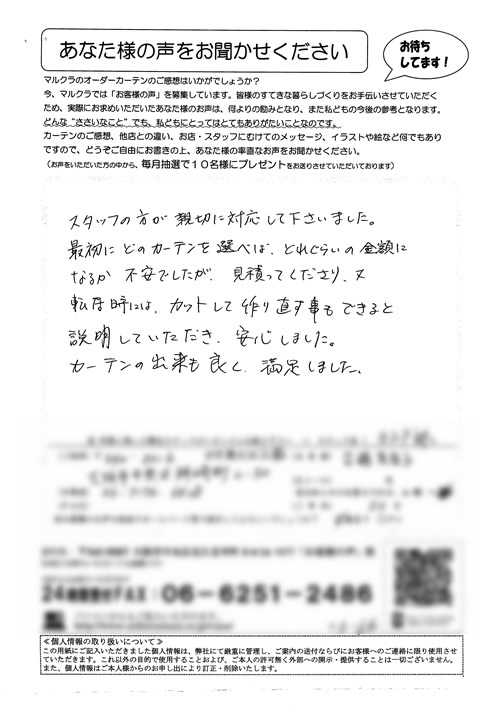 あなた様の声をお聞かせください
お待ち
してます！
マルクラのオーダーカーテンのご感想はいかがでしょうか？
今、マルクラでは「お客様の声」を募集しています。皆様のすてきな暮らしづくりをお手伝いさせていただく
ため、実際にお求めいただいたあなた様のお声は、何よりの励みとなり、また私どもの今後の参考となります。
どんな“ささいなこと”でも、私どもにとってはとてもありがたいことなのです。
カーテンのご感想、他店との違い、お店・スタッフにむけてのメッセージ、イラストや絵など何でもあり
ですので、どうぞご自由にお書きの上、あなた様の率直なお声をお聞かせください。
（お声をいただいた方の中から、毎月抽選で１０名様にプレゼントをお送りさせていただいております）
スタッフの方が親切に対応して下さいました。
最初にどのカーテンを選べば、どれぐらいの金額に
なるか不安でしたが、見積ってくださり、又
転居時には、カットして作り直す事もできると
説明していただき、安心しました。
カーテンの出来も良く、満足しました。
24時間受付FAX：06－6251－2486
≪個人情報の取り扱いについて≫
この用紙にご記入いただきました個人情報は、弊社にて厳重に管理し、ご案内の送付ならびにお客様へのご連絡に限り使用させ
ていただきます。これ以外の目的で使用することおよび、ご本人の許可無く外部への開示・提供することは一切ございません。
また、個人情報はご本人様からのお申し出により訂正・削除いたします。